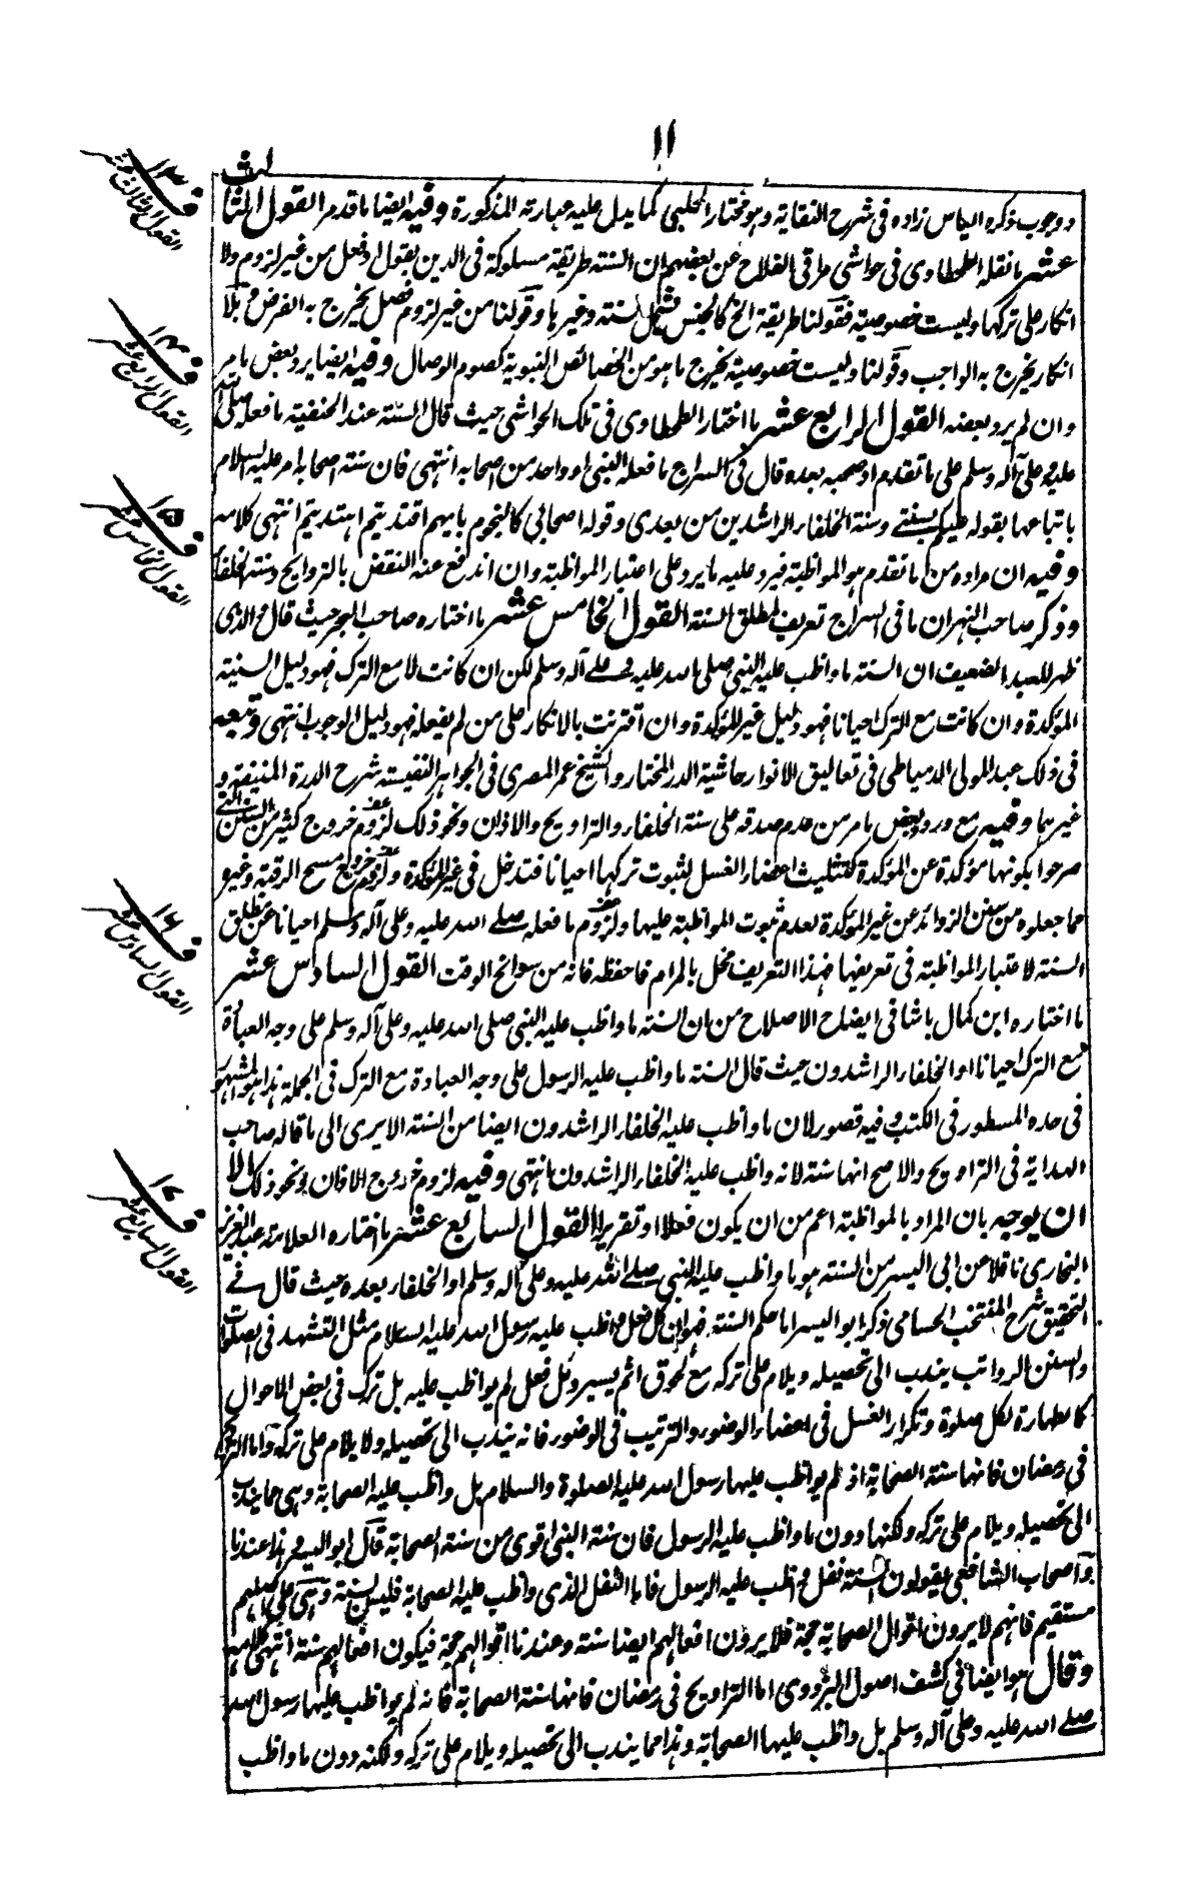 ۱۱
د وجوب ذكره الياس زاده فى شرح النقاية وهو مختار الحلبى كما يدل عليه عبارته المذكورة وفيه ايضا ما قدمر القول الثا
لث
عشر ما نقله الطحطاوى فى حواشى مراقى الفلاح عن بعضهم ان السنة طريقة مسلوكة فى الدين بقول او فعل من غير لزوم ولا
انكار على تركها وليست خصوصية فقولنا طريقة الخ كالجنس يشمل السنة وغيرها وقولنا من غير لزوم فصل يخرج به الفرض و بلا
انكار يخرج به الواجب وقولنا وليست خصوصية يخرج ما هو من الخصائص النبوية كصوم الوصال وفيه ايضا يرد بعض ما مر
وان لم يرد بعضه القول الرابع عشر ما اختار الطحطاوى فى تلك الحواشى حيث قال السنة عند الحنفية ما فعله صلى الله
عليه وعلى آله وسلم على ما تقدم او صحبه بعده قال فى السراج ما فعله النبى او واحد من اصحابه انتهى فان سنة اصحابه امر عليه السلام
باتباعها بقوله عليكم بسنتى وسنة الخلفاء الراشدين من بعدى وقوله اصحابى كالنجوم بايهم اقتديتم اهتديتم انتهى كلامه
وفيه ان مراده من ما تقدم هو المواظبة فيرد عليه ما يرد على اعتبار المواظبة وان اندفع عنه النقض بالتراويح وسنة الخلفاء
وذكر صاحب النهر ان ما فى السراج تعريف لمطلق السنة القول الخامس عشر ما اختاره صاحب البحر حيث قال والذى
ظهر للعبد الضعيف ان السنة ما واظب عليه النبى صلى الله عليه وعلى آله وسلم لكن ان كانت لا مع الترك فهو دليل السنية
المؤكدة وان كانت مع الترك احيانا فهو دليل غير المؤكدة وان اقترنت بالانكار على من لم يفعله فهو دليل الوجوب انتهى وتبعه
فى ذلك عبد المولى الدمياطى فى تعاليق الانوار حاشية الدر المختار والشيخ عمر المصرى فى الجواهر النفيسة شرح الدرة المنيفة و
غيرهما وفيه مع ورود بعض ما مر من عدم صدقه على سنة الخلفاء والتراويح والاذان ونحو ذلك لزوم خروج كثير من السنن التى
صرحوا بكونها مؤكدة عن المؤكدة كتثليث اعضاء الغسل لثبوت تركها احيانا فتدخل فى غير المؤكدة ولزوم خروج مسح الرقبة وغيره
مما جعلوه من سنن الزوائد عن غير المؤكدة بعدم ثبوت المواظبة عليها ولزوم ما فعله صلى الله عليه وعلى آله وسلم احيانا عن مطلق
السنة لاعتبار المواظبة فى تعريفها فهذا التعريف مخل بالمرام فاحفظه فانه من سوانح الوقت القول السادس عشر
ما اختاره ابن كمال باشا فى ايضاح الاصلاح من ان السنة ما واظب عليه النبى صلى الله عليه وعلى آله وسلم على وجه العبادة
مع الترك احيانا او الخلفاء الراشدون حيث قال السنة ما واظب عليه الرسول على وجه العبادة مع الترك فى الجملة هذا هو المشهور
فى حده المسطور فى الكتب وفيه قصور لان ما واظب عليه الخلفاء الراشدون ايضا من السنة الا يرى الى ما قاله صاحب
الهداية فى التراويح والاصح انها سنة لانه واظب عليه الخلفاء الراشدون انتهى وفيه لزوم خروج الاذان ونحو ذلك الا
ان يوجه بان المراد بالمواظبة اعم من ان يكون فعلا او تقريرا القول السابع عشر ما اختاره العلامة عبد العزيز
البخارى ناقلا عن ابى اليسر من السنة هو ما واظب عليه النبى صلى الله عليه وعلى آله وسلم او الخلفاء بعده حيث قال فى
التحقيق شرح المنتخب الحسامى ذكر ابو اليسر اما حكم السنة فهو ان كل فعل واظب عليه رسول الله عليه السلام مثل التشهد فى الصلوات
والسنن الرواتب يندب الى تحصيله ويلام على تركه مع لحوق اثم يسير وكل فعل لم يواظب عليه بل ترك فى بعض الاحوال
كالطهارة لكل صلوة وتكرار الغسل فى اعضاء الوضوء والترتيب فى الوضوء فانه يندب الى تحصيله ولا يلام على تركه واما التراويح
فى رمضان فانها سنة الصحابة اذ لم يواظب عليها رسول الله عليه الصلوة والسلام بل واظب عليه الصحابة وهى مما يندب
الى تحصيله ويلام على تركه ولكنها دون ما واظب عليه الرسول فان سنة النبى اقوى من سنة الصحابة قال ابو اليسر وهذا عندنا
واصحاب الشافعى يقولون السنة نفل واظب عليه الرسول فاما النفل الذى واظب عليه الصحابة فليس بسنة وهى على اصلهم
مستقيم فانهم لا يرون اقوال الصحابة حجة فلا يرون افعالهم ايضا سنة وعندنا اقوالهم حجة فيكون افعالهم سنة انتهى كلامه
وقال هو ايضا فى كشف اصول البزدوى اما التراويح فى رمضان فانها سنة الصحابة فانه لم يواظب عليها رسول الله
صلى الله عليه وعلى آله وسلم بل واظب عليها الصحابة وهذا مما يندب الى تحصيله ويلام على تركه ولكنه دون ما واظب
ف ۱۳
القول الثالث عشر
ف ۱۴
القول الرابع عشر
ف ۱۵
القول الخامس عشر
ف ۱۶
القول السادس عشر
ف ۱۷
القول السابع عشر